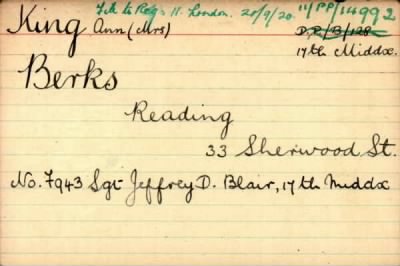 King Ann (Mrs) File to Reg. N. London. 28/9/20. 11/PP/14992
D.R/B/128
17th Middx.
Berks
Reading
33 Sherwood St.
No. 7943 Sgt Jeffrey D. Blair, 17th Middx